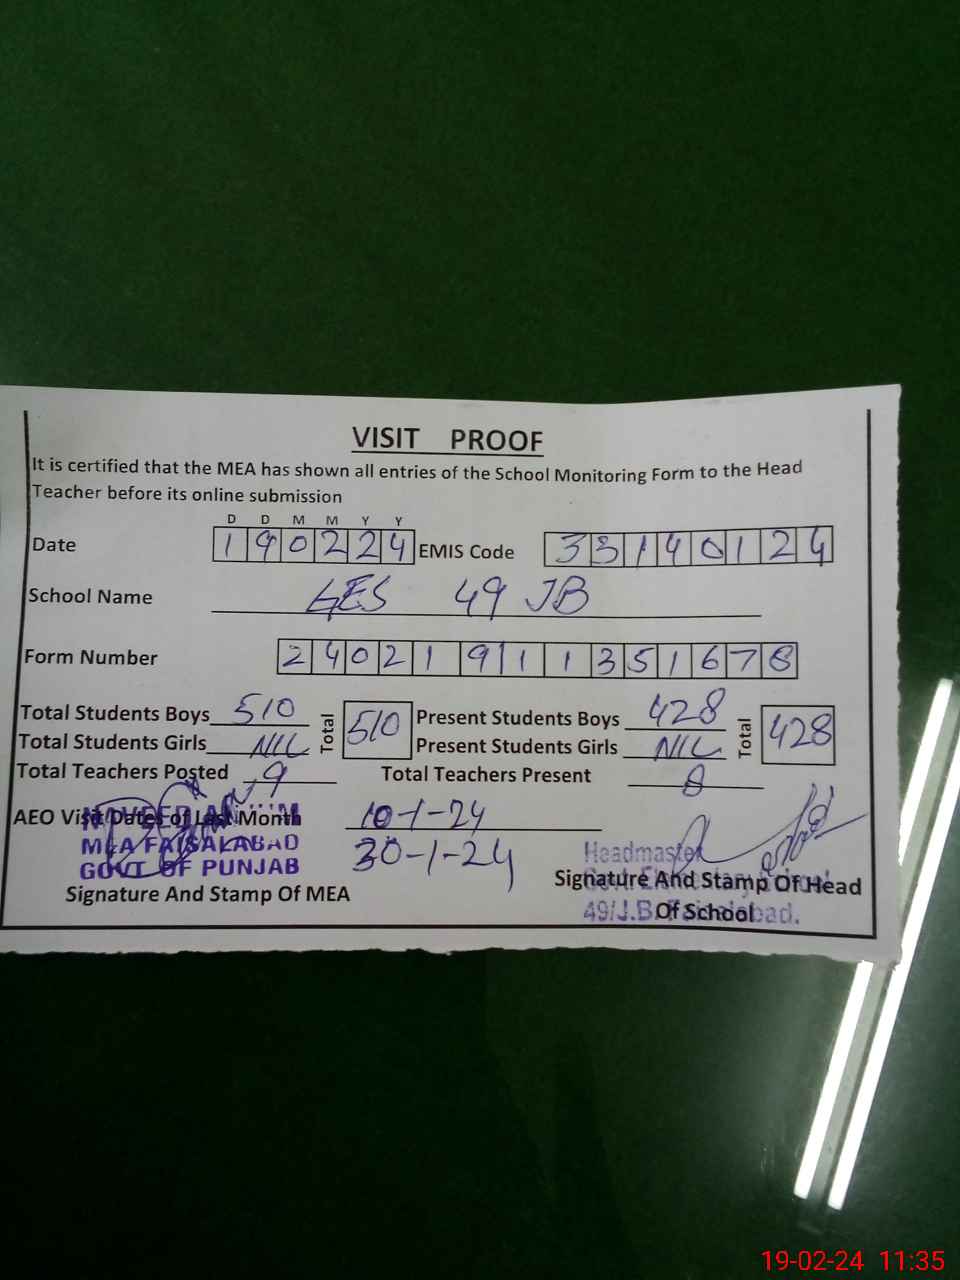 VISIT PROOF
It is certified that the MEA has shown all entries of the School Monitoring Form to the Head
Teacher before its online submission
D D M M Y Y
Date 190224 EMIS Code 33140124
School Name GES 49 JB
Form Number 24021911351678
Total Students Boys 510 Total 510 Present Students Boys 428 Total 428
Total Students Girls NIL Present Students Girls NIL
Total Teachers Posted 9 Total Teachers Present 8
AEO Visit Dates of Last Month 10-1-24
30-1-24
MEA FAISALABAD
GOVT OF PUNJAB
Signature And Stamp Of MEA
Headmaster
Signature And Stamp Of Head
Of School
49/J.B. Faisalabad.
19-02-24 11:35